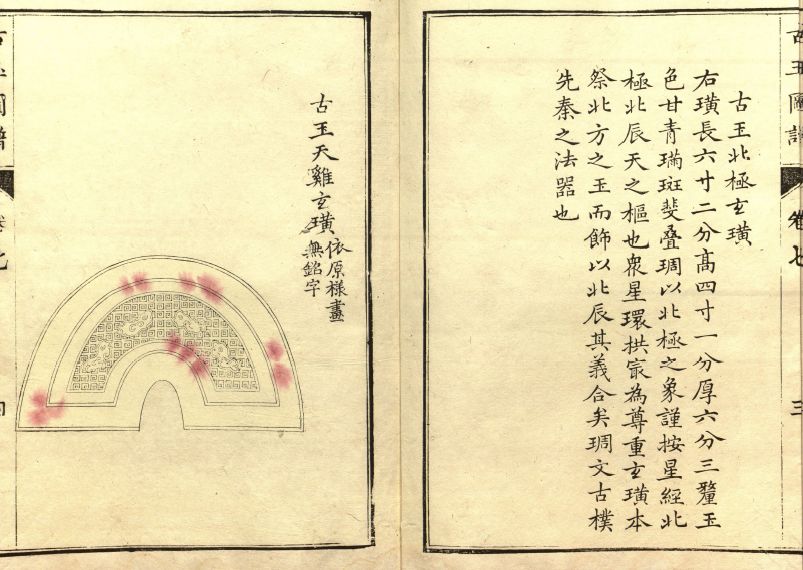 古玉圖譜
卷七
三
古玉北極玄璜
右璜長六寸二分高四寸一分厚六分三釐玉
色甘青璊斑斐疊琱以北極之象謹按星經北
極北辰天之樞也衆星環拱㝡為尊重玄璜本
祭北方之玉而飾以北辰其義合矣琱文古樸
先秦之法器也
古玉天雞玄璜
依原樣畫
無銘字
古玉圖譜
卷七